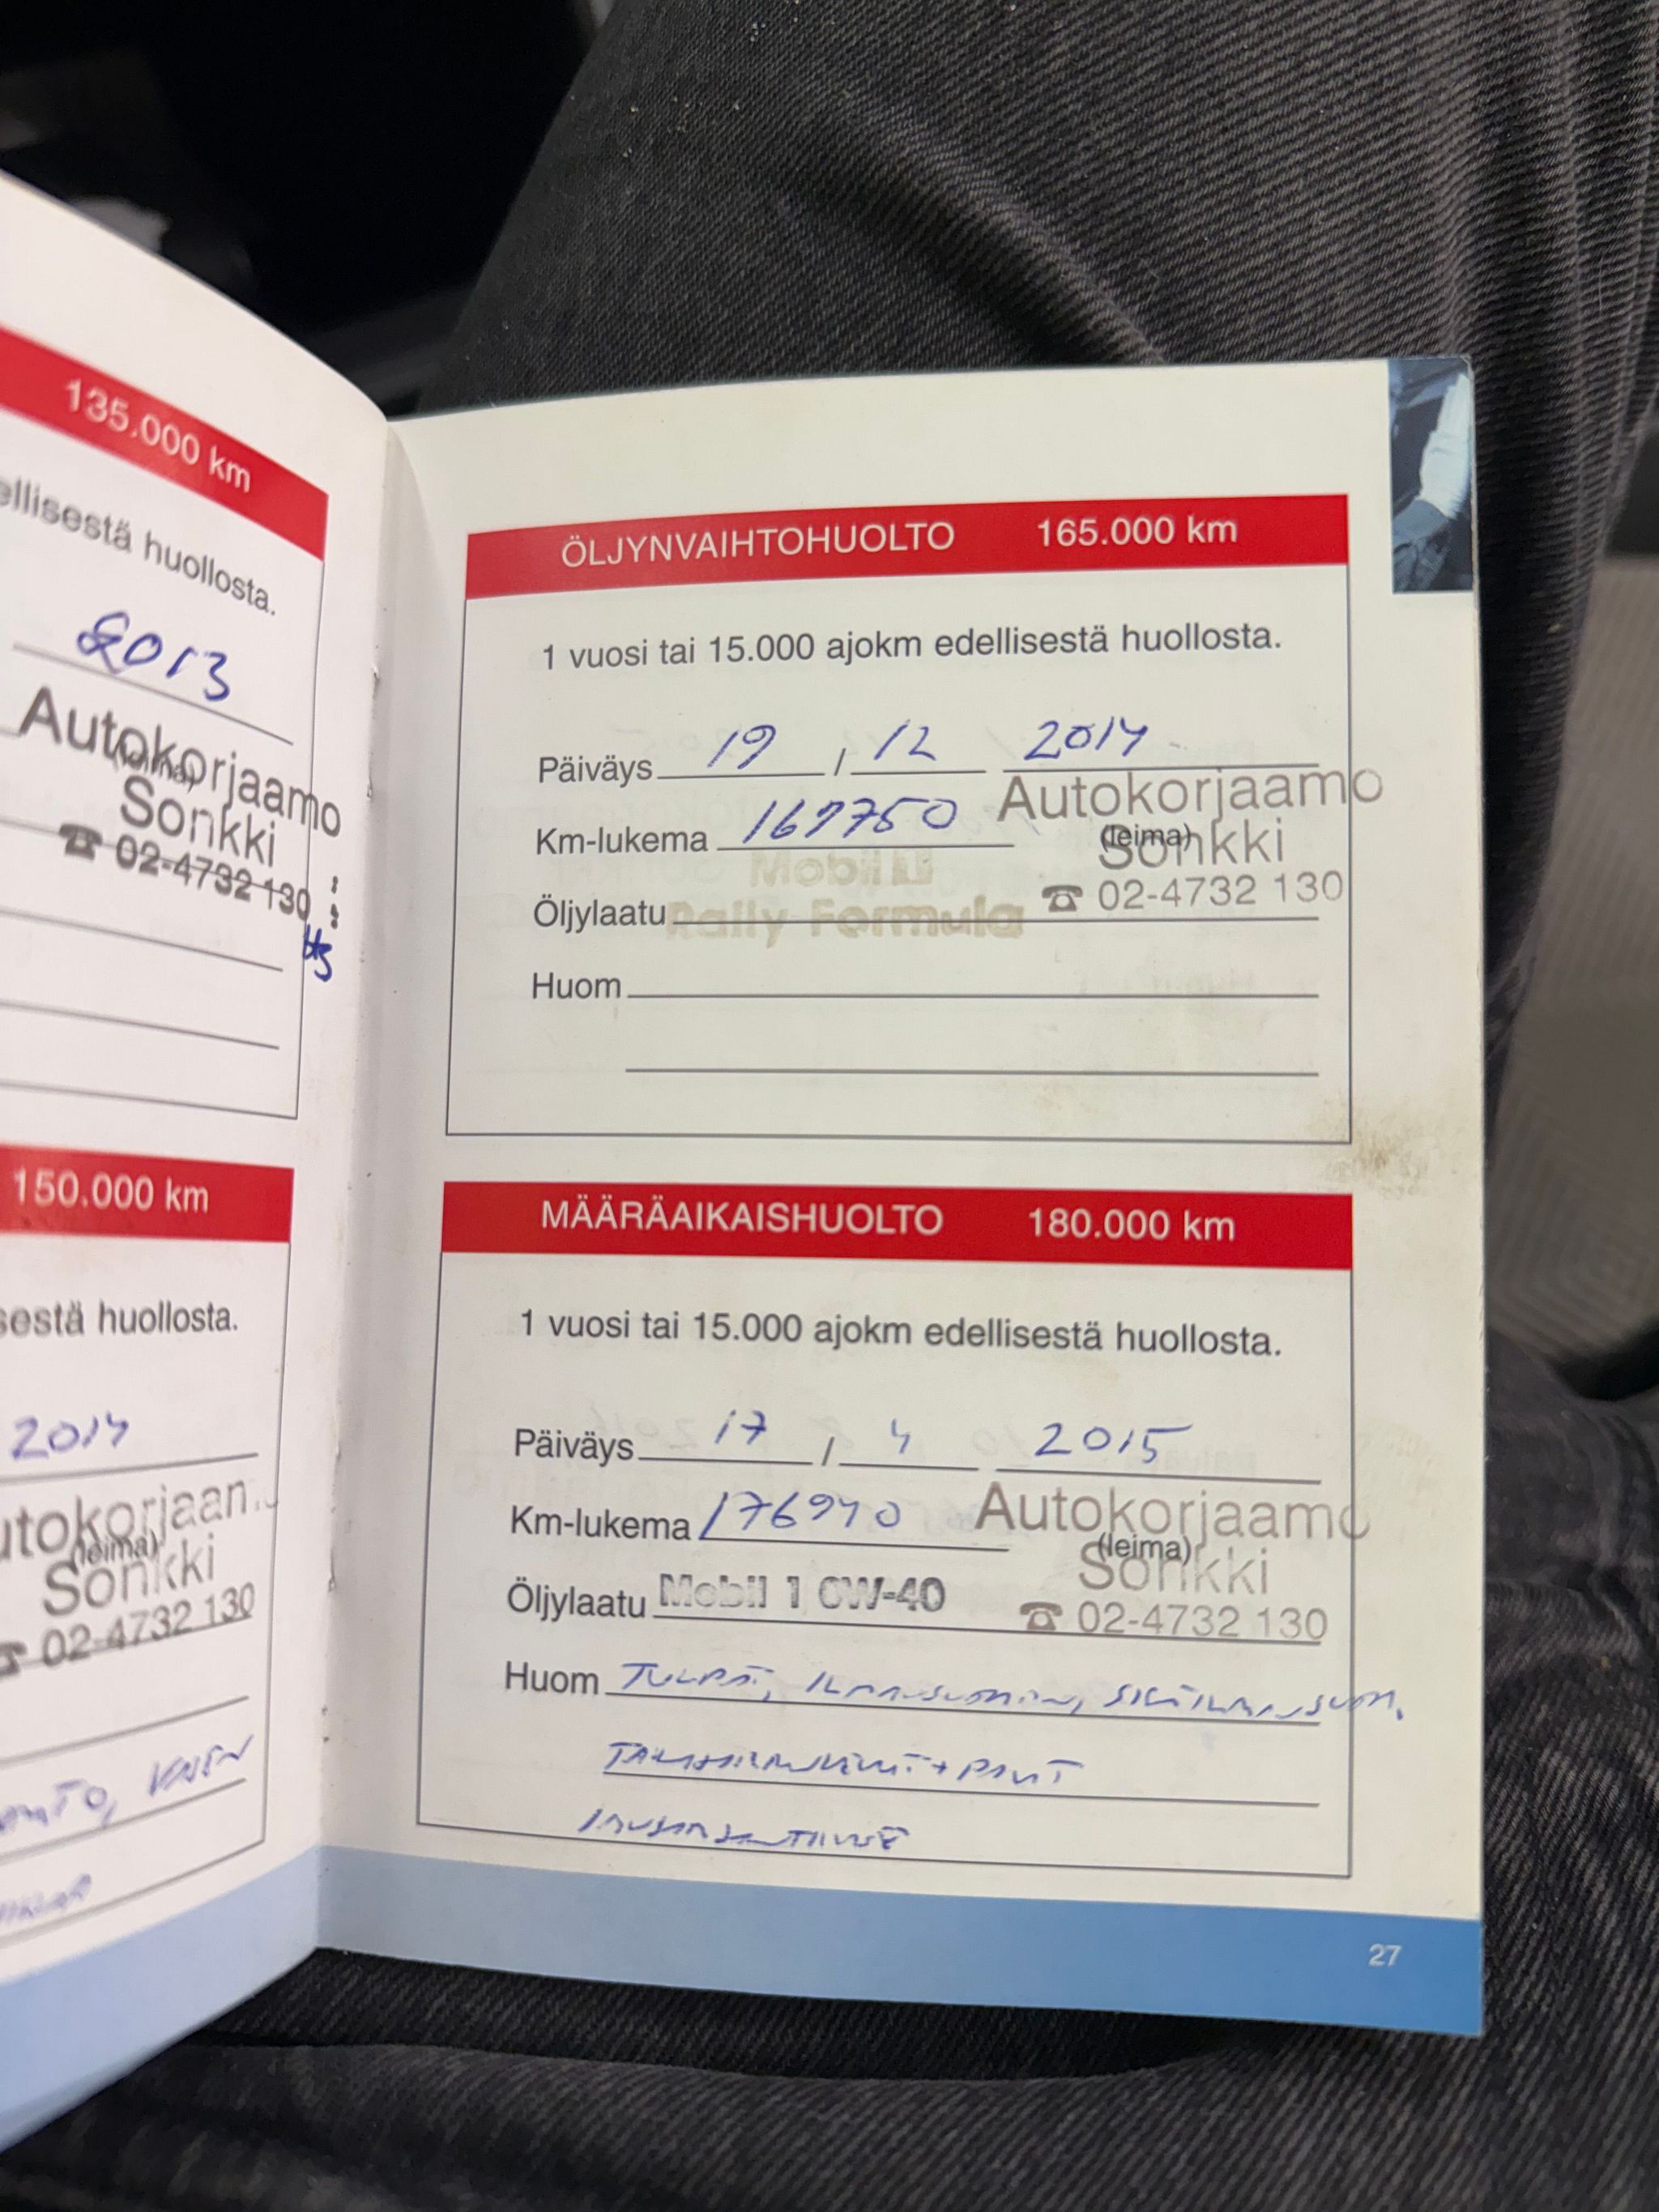 135.000 km
ellisestä huollosta.
2013
Autokorjaamo
(leima)
Sonkki
☎ 02-4732 130
150.000 km
sestä huollosta.
2014
utokorjaam
(leima)
Sonkki
☎ 02-4732 130
ÖLJYNVAIHTOHUOLTO 165.000 km
1 vuosi tai 15.000 ajokm edellisestä huollosta.
Päiväys 19 / 12 2014
Km-lukema Autokorjaamo
(leima)
Sonkki
Mobil 1
Öljylaatu Rally Formula ☎ 02-4732 130
Huom
MÄÄRÄAIKAISHUOLTO 180.000 km
1 vuosi tai 15.000 ajokm edellisestä huollosta.
Päiväys 17 / 4 2015
Km-lukema 176940 Autokorjaamo
(leima)
Sonkki
Öljylaatu Mobil 1 0W-40 ☎ 02-4732 130
Huom TULPAT, ILMANSUODATIN, SISÄILMANSUOD.
27